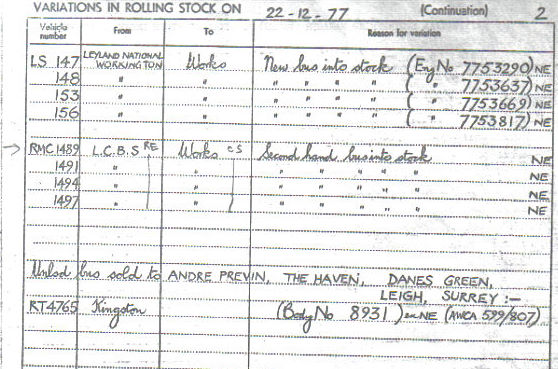 VARIATIONS IN ROLLING STOCK ON 22-12-77 (Continuation) 2
Vehicle number From To Reason for variation
LS 147 LEYLAND NATIONAL WORKINGTON Works New bus into stock (Eng No 7753290) NE
148 " " " " " " ( " 7753637) NE
153 " " " " " " ( " 7753669) NE
156 " " " " " " ( " 7753817) NE
→ RMC 1489 L.C.B.S RE Works CS Second hand bus into stock NE
1491 " " " " " " " NE
1494 " " " " " " " NE
1497 " " " " " " " NE
Unlsd bus sold to ANDRE PREVIN, THE HAVEN, DANES GREEN,
LEIGH, SURREY :-
RT4765 Kingston (Body No 8931) ex NE (AWCA 599/807)